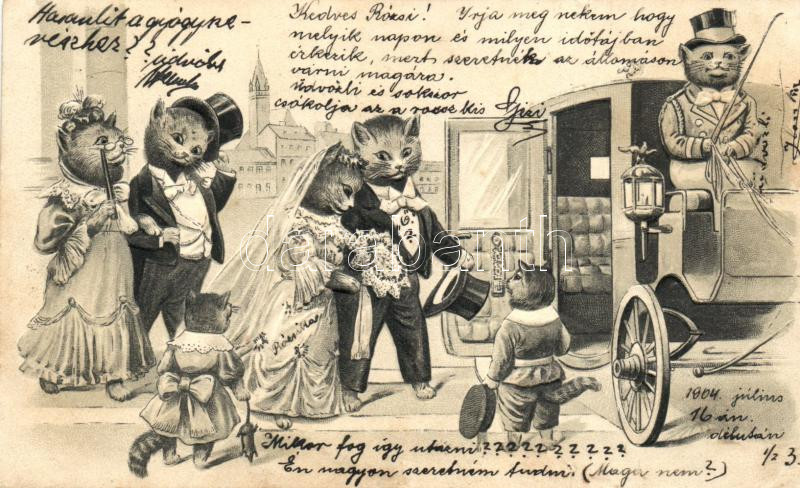 Hasonlit a gyógyne-
vészhez??
üdvözlet
Kedves Rózsi! Irja meg nekem hogy
melyik napon és milyen időtájban
érkezik, mert szeretnék az állomáson
várni magára.
üdvözli és sokszor
csókolja az a rossz kis Gizi
G. Z.
Rózsika
darabanth
1904. július
16-án
délután
1/2 3
Mikor fog igy utazni ??????????
Én nagyon szeretném tudni. (Maga nem?)